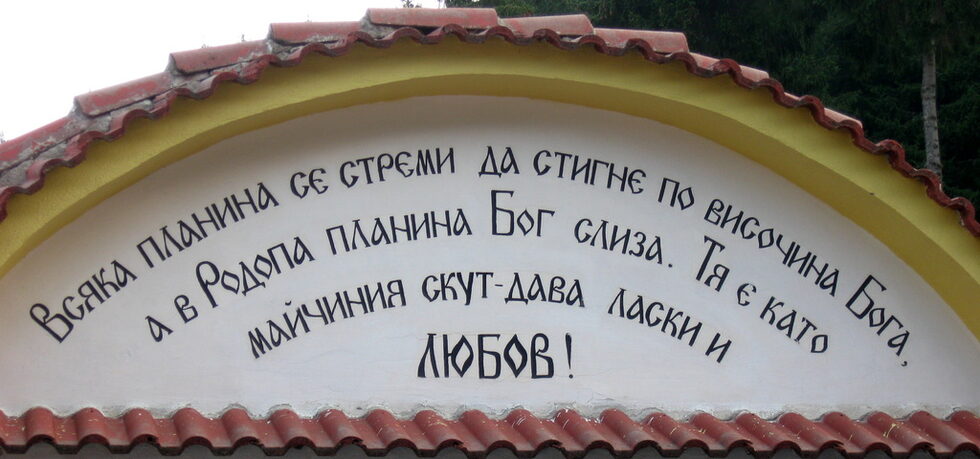 Всяка планина се стреми да стигне по височина Бога,
а в Родопа планина Бог слиза. Тя е като
майчиния скут-дава ласки и
любов!